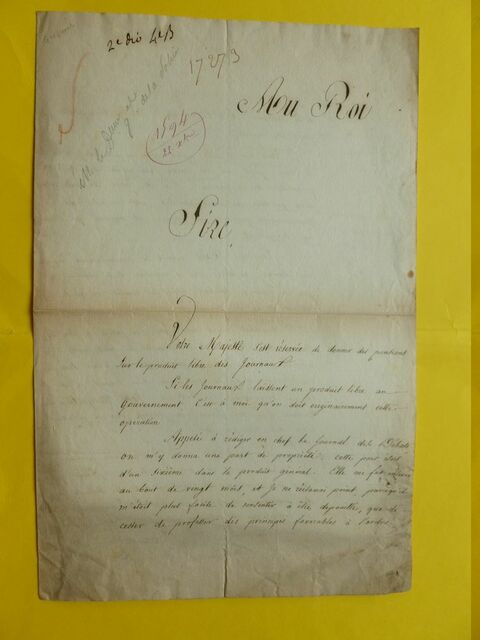 2e dio 4e B
17273
1894
Au Roi
Sire,
Votre Majesté s'est réservée de donner des pensions
sur le produit libre des Journaux.
Si les Journaux laissent un produit libre au
Gouvernement c'est à moi qu'on doit originairement cette
operation
Appelé à rédiger en chef le Journal des Débats
on m'y donna une part de propriété: cette part était
d'un Sixième dans le produit général. Elle me fut
au bout de vingt mois, et Je ne réclamai point, parce qu'il
m'était plus facile de consentir à être dépouillé, que de
cesser de professer des principes favorables à l'ordre